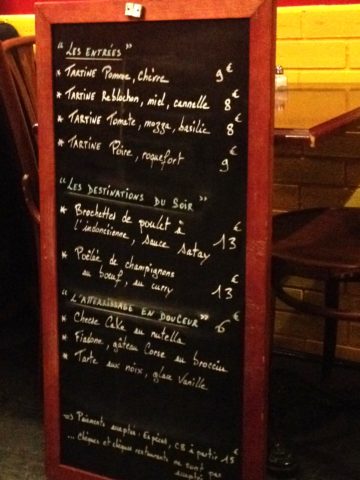 "LES ENTREES"
* TARTINE Pomme, chèvre 9€
* TARTINE Reblochon, miel, cannelle 8€
* TARTINE Tomate, mozza, basilic 8€
* TARTINE Poire, roquefort 9€
"LES DESTINATIONS DU SOIR"
* Brochettes de poulet à
l'indonésienne, sauce satay 13€
* Poêlée de champignons
au boeuf, au curry 13€
"L'ATTERRISSAGE EN DOUCEUR" 6€
* Cheese Cake au nutella
* Fiadone, gâteau Corse au brocciu
* Tarte aux noix, glace Vanille
=> Paiements acceptés : Espèces, CB à partir 15€
... Chèques et chèques restaurants ne sont pas
acceptés